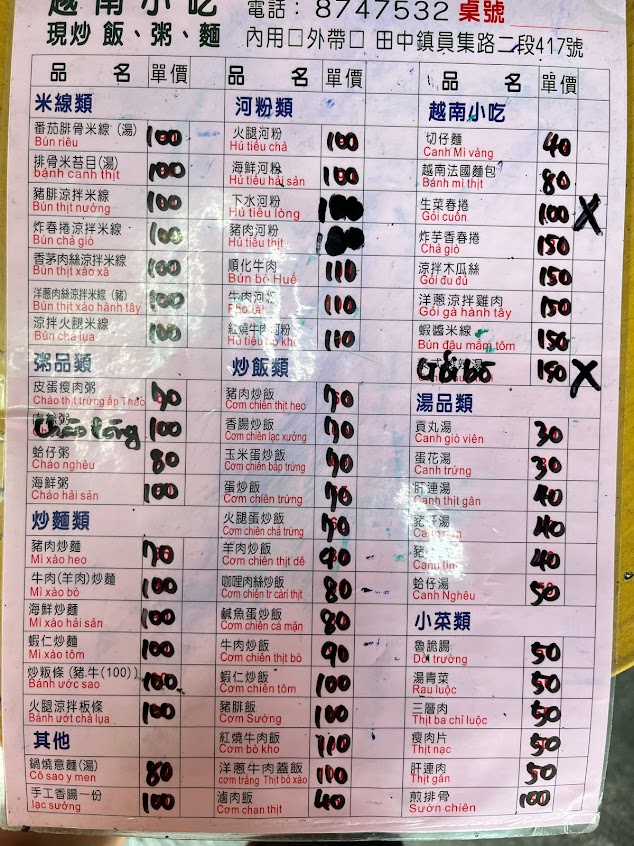 越南小吃 電話：8747532 桌號
現炒飯、粥、麵 內用□外帶□ 田中鎮員集路二段417號
品 名 單價 品 名 單價 品 名 單價
米線類
番茄腓骨米線(湯) 100
Bún riêu
排骨米苔目(湯) 100
bánh canh thịt
豬腓涼拌米線 100
Bún thịt nướng
炸春捲涼拌米線 100
Bún chả giò
香茅肉絲涼拌米線 100
Bún thịt xào xã
洋蔥肉絲涼拌米線(豬) 100
Bún thịt xào hành tây
涼拌火腿米線 100
Bún chả lụa
粥品類
皮蛋瘦肉粥 90
Cháo thịt trứng ấp Thảo
粥 100
Cháo lòng
蛤仔粥 80
Cháo nghêu
海鮮粥 100
Cháo hải sản
炒麵類
豬肉炒麵 70
Mì xào heo
牛肉(羊肉)炒麵 100
Mì xào bò
海鮮炒麵 100
Mì xào hải sản
蝦仁炒麵 100
Mì xào tôm
炒粄條(豬.牛(100)) 100
Bánh ướt sao
火腿涼拌板條 100
Bánh ướt chả lụa
其他
鍋燒意麵(湯) 80
Cô sao y men
手工香腸一份 100
lạc sưởng
河粉類
火腿河粉 100
Hủ tiếu chả
海鮮河粉 100
Hủ tiếu hải sản
下水河粉
Hủ tiếu lòng
豬肉河粉
Hủ tiếu thịt
順化牛肉 110
Bún bò Huế
牛肉河粉 110
Phở tái
紅燒牛肉河粉 110
Hủ tiếu bò kho
炒飯類
豬肉炒飯 70
Cơm chiên thịt heo
香腸炒飯 70
Cơm chiên lạc xưởng
玉米蛋炒飯 70
Cơm chiên bắp trứng
蛋炒飯 70
Cơm chiên trứng
火腿蛋炒飯 70
Cơm chiên chả trứng
羊肉炒飯 90
Cơm chiên thịt dê
咖哩肉絲炒飯 80
Cơm chiên tr càri thịt
鹹魚蛋炒飯 80
Cơm chiên cá mặn
牛肉炒飯 90
Cơm chiên thịt bò
蝦仁炒飯 100
Cơm chiên tôm
豬腓飯 100
Cơm Sường
紅燒牛肉飯 110
Cơm bò kho
洋蔥牛肉蓋飯 110
cơm trắng Thịt bò xào
滷肉飯 40
Cơm chan thịt
越南小吃
切仔麵 40
Canh Mì vàng
越南法國麵包 80
Bánh mì thịt
生菜春捲 100 X
Gỏi cuốn
炸芋香春捲 150
Chả giò
涼拌木瓜絲 150
Gỏi đu đủ
洋蔥涼拌雞肉 150
Gỏi gà hành tây
蝦醬米線 150
Bún đậu mắm tôm
Gỏi bò 150 X
湯品類
貢丸湯 30
Canh giò viên
蛋花湯 30
Canh trứng
肝連湯 40
Canh thịt gân
湯 40
豬 40
Canh tim
蛤仔湯 50
Canh Nghêu
小菜類
魯脆腸 50
Dồi trường
湯青菜 50
Rau luộc
三層肉 50
Thịt ba chỉ luộc
瘦肉片 50
Thịt nạc
肝連肉 50
Thịt gân
煎排骨 100
Sườn chiên